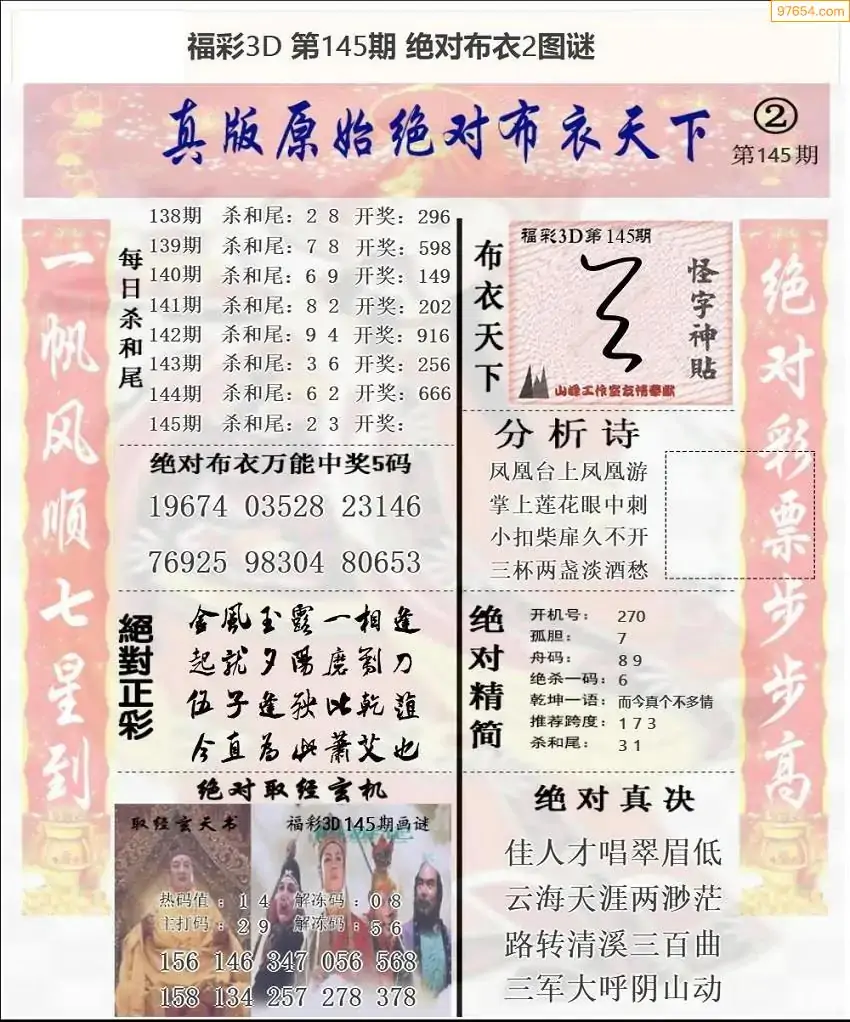 97654.com
福彩3D 第145期 绝对布衣2图谜
真版原始绝对布衣天下
②
第145期
一帆风顺七星到
每日杀和尾
138期 杀和尾：2 8 开奖：296
139期 杀和尾：7 8 开奖：598
140期 杀和尾：6 9 开奖：149
141期 杀和尾：8 2 开奖：202
142期 杀和尾：9 4 开奖：916
143期 杀和尾：3 6 开奖：256
144期 杀和尾：6 2 开奖：666
145期 杀和尾：2 3 开奖：
绝对布衣万能中奖5码
19674 03528 23146
76925 98304 80653
絕對正彩
金風玉露一相逢
起就夕陽磨劉刀
伍子逢殃比乾
今直為此蕭艾也
绝对取经玄机
取经玄天书
福彩3D145期画谜
热码值：1 4 解冻码：0 8
主打码：2 9 解冻码：5 6
156 146 347 056 568
158 134 257 278 378
布衣天下
福彩3D第145期
怪字神貼
山峰工作室友情奉献
分析诗
凤凰台上凤凰游
掌上莲花眼中刺
小扣柴扉久不开
三杯两盏淡酒愁
绝对精简
开机号： 270
孤胆： 7
舟码： 8 9
绝杀一码：6
乾坤一语：而今真个不多情
推荐跨度：1 7 3
杀和尾： 3 1
绝对真决
佳人才唱翠眉低
云海天涯两渺茫
路转清溪三百曲
三军大呼阴山动
绝对彩票步步高